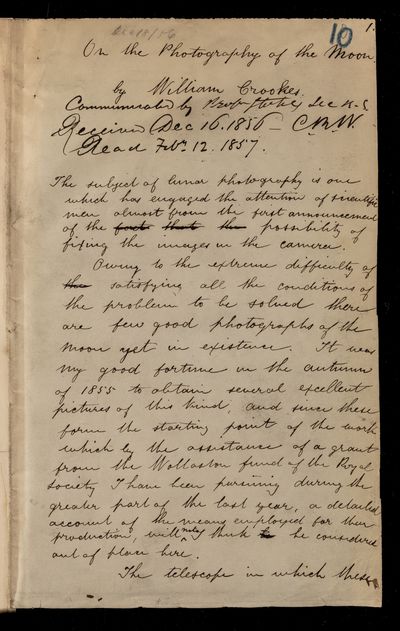 Dec 18/56
10
1.
On the Photography of the Moon
by William Crookes.
Communicated by Prof. Stokes Sec R.S.
Received Dec 16. 1856 – C.R.W.
Read Feb. 12. 1857.
The subject of lunar photography is one
which has engaged the attention of scientific
men almost from the first announcement
of the fact that the possibility of
fixing the images in the camera.
Owing to the extreme difficulty of
the satisfying all the conditions of
the problem to be solved there
are few good photographs of the
moon yet in existence. It was
my good fortune in the autumn
of 1855 to obtain several excellent
pictures of this kind, and since these
form the starting point of the work
which by the assistance of a grant
from the Wollaston fund of the Royal
Society I have been pursuing during the
greater part of the last year, a detailed
account of the means employed for their
production, will not, I think be considered
out of place here.
The telescope in which these